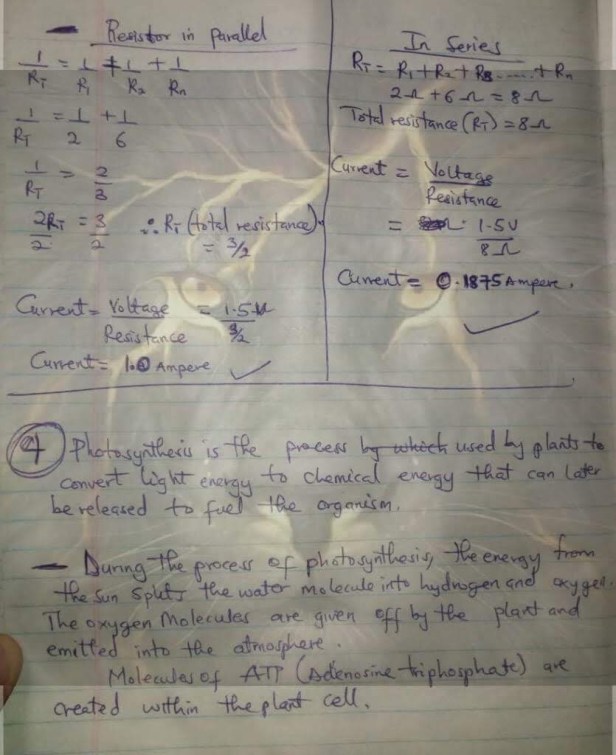 — Resistor in parallel
1/RT = 1/R1 + 1/R2 + 1/Rn
1/RT = 1/2 + 1/6
1/RT = 2/3
2RT/2 = 3/2 ∴ RT (total resistance)
= 3/2
Current = Voltage/Resistance = 1.5/(3/2)
Current = 1.0 Ampere ✓
In Series
RT = R1 + R2 + R3 ...... + Rn
2Ω + 6Ω = 8Ω
Total resistance (RT) = 8Ω
Current = Voltage/Resistance
= 1.5V/8Ω
Current = 0.1875 Ampere.
✓
4 Photosynthesis is the process by which used by plants to
convert light energy to chemical energy that can later
be released to fuel the organism.
— During the process of photosynthesis, the energy from
the sun splits the water molecule into hydrogen and oxygen.
The oxygen molecules are given off by the plant and
emitted into the atmosphere.
Molecules of ATP (Adenosine triphosphate) are
created within the plant cell.